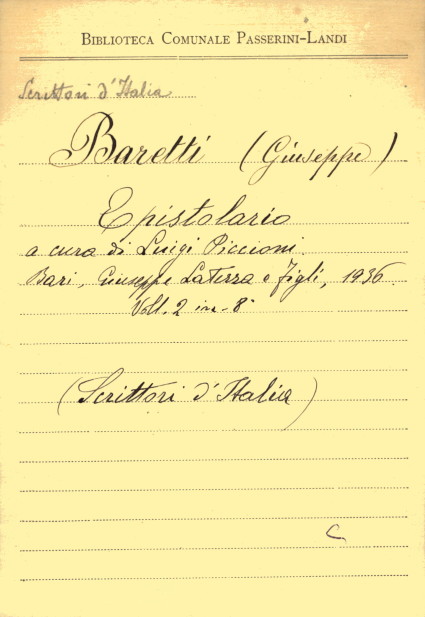 BIBLIOTECA COMUNALE PASSERINI-LANDI
Scrittori d'Italia
Baretti (Giuseppe)
Epistolario
a cura di Luigi Piccioni.
Bari, Giuseppe Laterza e figli, 1936
Voll. 2 in-8°
(Scrittori d'Italia)
C